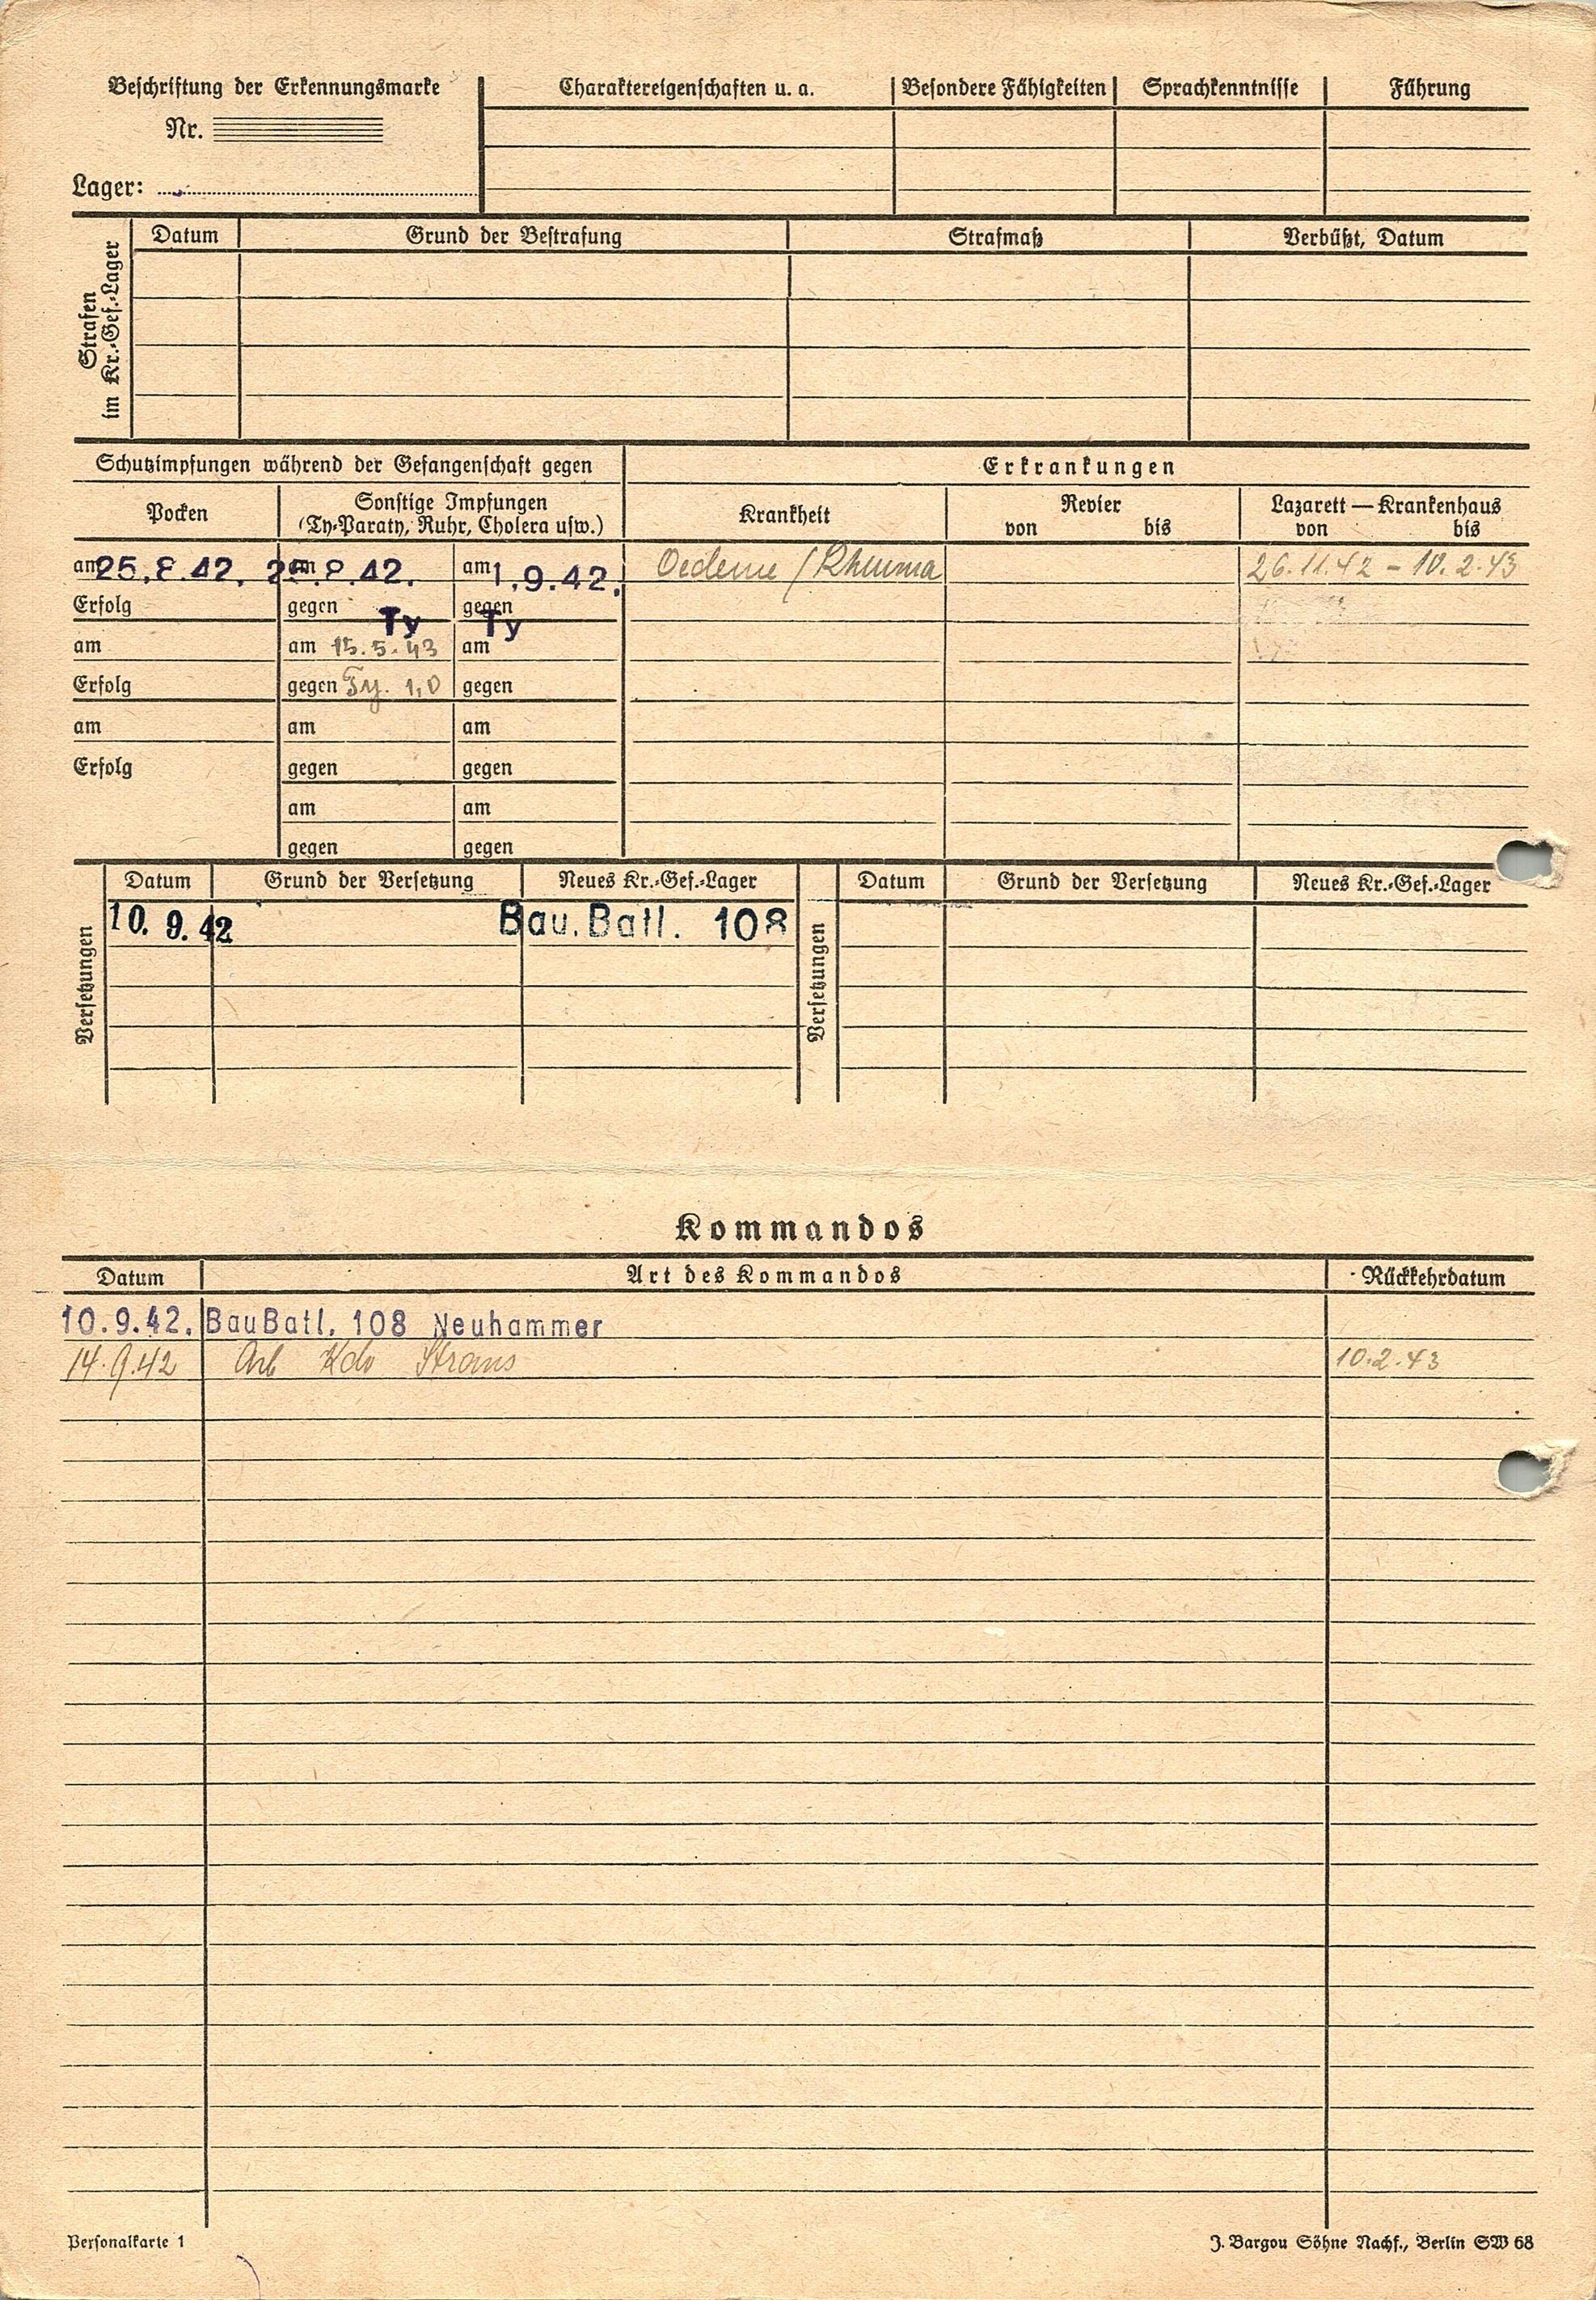 Beschriftung der Erkennungsmarke
Nr.
Lager:
Charaktereigenschaften u. a.
Besondere Fähigkeiten
Sprachkenntnisse
Führung
Strafen
im Kr.-Gef.-Lager
Datum
Grund der Bestrafung
Strafmaß
Verbüßt, Datum
Schutzimpfungen während der Gefangenschaft gegen
Erkrankungen
Pocken
Sonstige Impfungen
(Ty-Paraty, Ruhr, Cholera usw.)
Krankheit
Revier
von bis
Lazarett — Krankenhaus
von bis
am 25.8.42. am 25.8.42. am 1.9.42. Oedeme / Rheuma 26.11.42 - 10.2.43
Erfolg gegen Ty gegen Ty
am am 15.5.43 am
Erfolg gegen Ty. 1,0 gegen
am am am
Erfolg gegen gegen
am am
gegen gegen
Versetzungen
Datum Grund der Versetzung Neues Kr.-Gef.-Lager
10.9.42 Bau.Batl. 108
Versetzungen
Datum Grund der Versetzung Neues Kr.-Gef.-Lager
Kommandos
Datum Art des Kommandos Rückkehrdatum
10.9.42. BauBatl. 108 Neuhammer
14.9.42 Arb Kdo Strans 10.2.43
Personalkarte 1
J. Bargou Söhne Nachf., Berlin SW 68